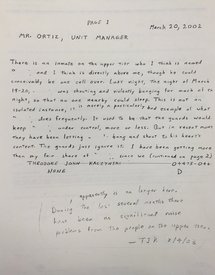 PAGE 1
March 20, 2002
MR. ORTIZ, UNIT MANAGER
There is an inmate on the upper tier who I think is named
" and I think is directly above me, though he could
conceivably be one cell over. Last night, the night of March
19-20, was shouting and violently banging for much of the
night, so that no one nearby could sleep. This is not an
isolated instance, it is merely a particularly bad example of what
does frequently. In used to be that the guards would
keep " under control, more or less. But in recent months
they have been letting bang and shout to his heart's
content. The guards just ignore it. I have been getting more
than my fair share of since we (continued on page 2)
THEODORE JOHN KACZYNSKI 04475-046
NONE D
apparently is no longer here.
During the last several months there
have been no significant noise
problems from the people on the upper tier.
— TJK